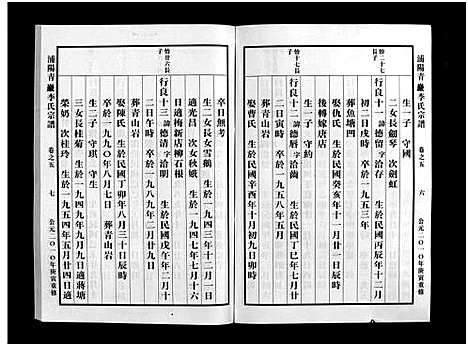 浦陽青巖李氏宗譜 卷之五 六 公元二〇一〇年庚寅重修
生一子 守國
二女長劍琴 次劍虹
恰二十七長子 行良十一 諱德留 字洽存 生於民國丙辰年十二月
初二日戌時 卒於一九五三年
葬魚塘凹
娶仇氏 生於民國癸亥年十一月初一日辰時
後轉嫁唐店
生一子 守約
恰十七長子 行良十二 諱德曆 字洽 生於民國丁巳年七月廿
二日寅時 卒於
娶曹氏 生於民國辛酉年十月初九日卯時
卒日無考
生二女長女雪勤 生於一九四三年十二月初
適光昌 次女秋娥 生於一九四七年七月十六
日適梅新店柳石根
恰廿六長子 行良十三 諱德清 字洽明 生於民國戊午年二月十
二日午時 卒於一九八九年二月廿九日
葬青山岩
娶陳氏 生於民國丁卯年八月三十日辰時
卒於一九九〇年八月七日 葬青山岩
生二子 守琪 守生
三女長桂菊 生於一九五一年九月九日適蔣塘
榮奶 次桂玲 生於一九五四年五月廿四日適
浦陽青巖李氏宗譜 卷之五 七 公元二〇一〇年庚寅重修